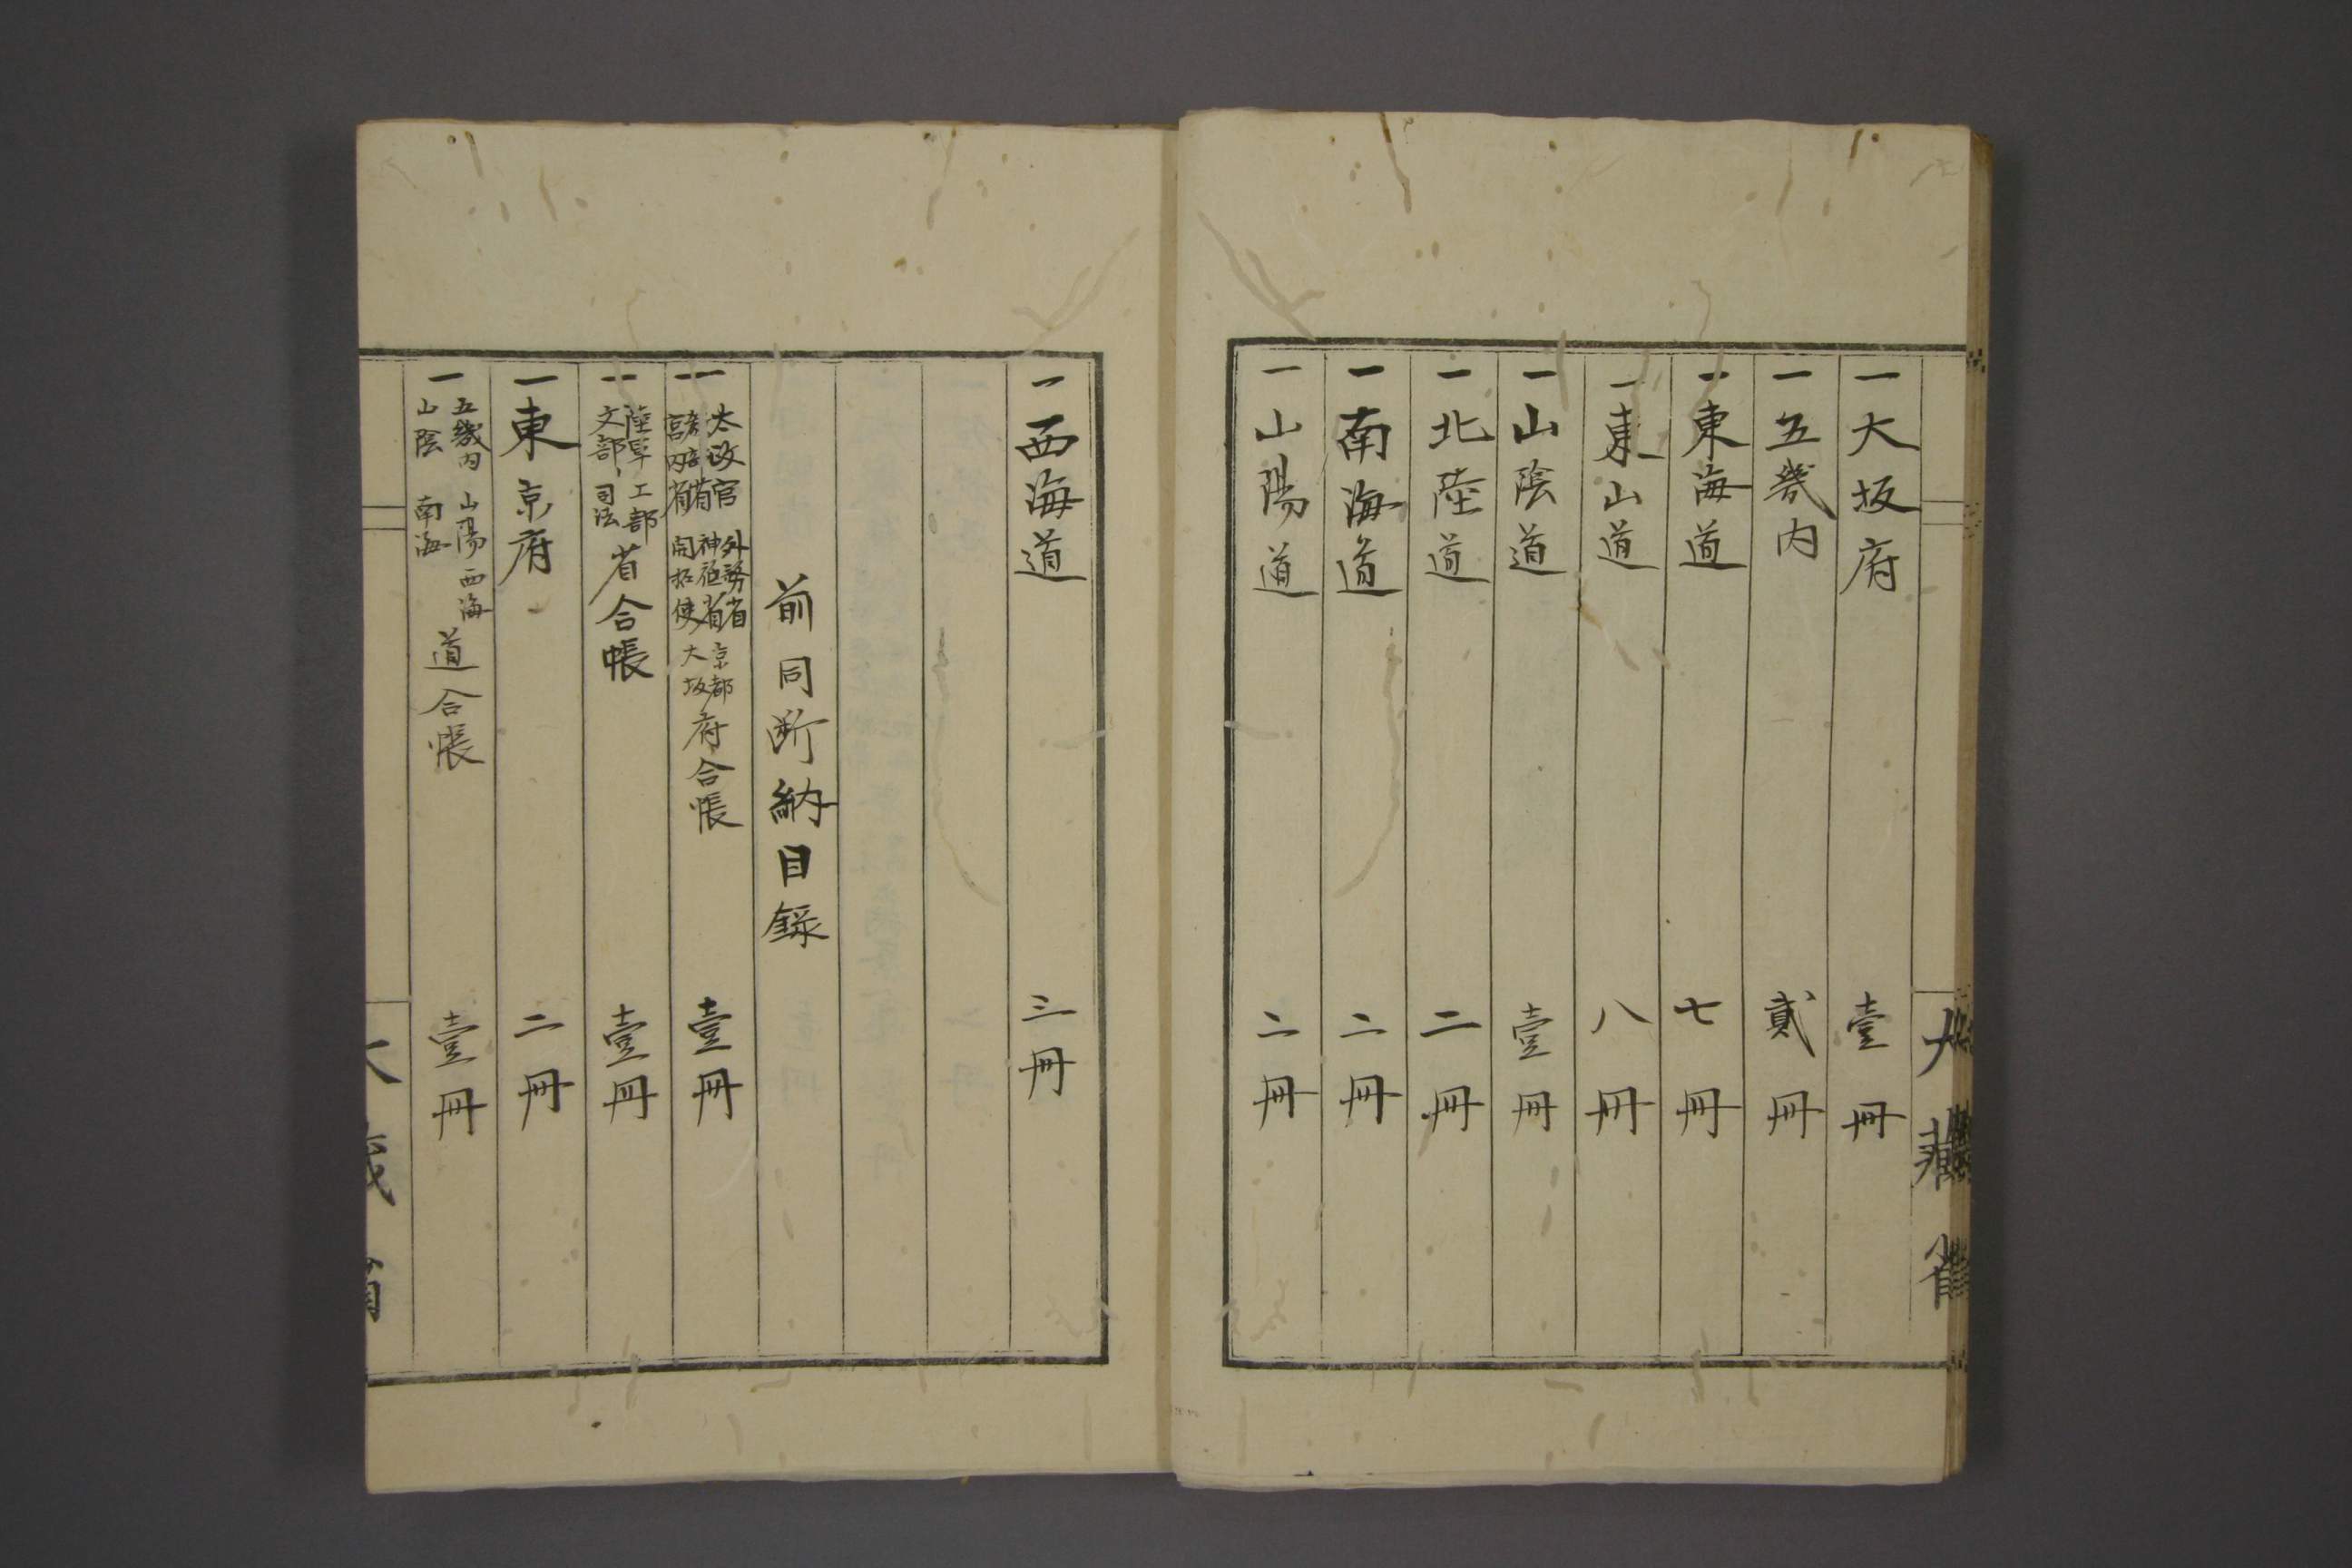 一大坂府 壹冊
一五幾内 貳冊
一東海道 七冊
一東山道 八冊
一山陰道 壹冊
一北陸道 二冊
一南海道 二冊
一山陽道 二冊
大藏省
一西海道 三冊
前同断納目録
一太政官 外務省 京都
省 神祇省
宮内省 開拓使 大坂
府合帳 壹冊
一陸軍 工部
文部 司法
省合帳 壹冊
一東京府 二冊
一五幾内 山陽 西海
山陰 南海
道合帳 壹冊
大藏省